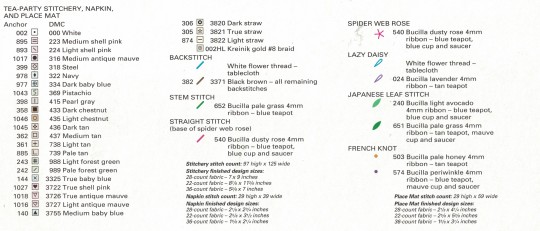 TEA-PARTY STITCHERY, NAPKIN,
AND PLACE MAT
Anchor DMC
002 000 White
895 223 Medium shell pink
893 224 Light shell pink
1017 316 Medium antique mauve
399 318 Steel
978 322 Navy
977 334 Dark baby blue
1043 369 Pistachio
398 415 Pearl gray
358 433 Dark chestnut
1046 435 Light chestnut
1045 436 Dark tan
362 437 Medium tan
361 738 Light tan
885 739 Pale tan
243 988 Light forest green
242 989 Pale forest green
144 3325 True baby blue
1027 3722 True shell pink
1018 3726 True antique mauve
1016 3727 Light antique mauve
140 3755 Medium baby blue
306 3820 Dark straw
305 3821 True straw
874 3822 Light straw
002HL Kreinik gold #8 braid
BACKSTITCH
White flower thread –
tablecloth
382 3371 Black brown – all remaining
backstitches
STEM STITCH
652 Bucilla pale grass 4mm
ribbon – blue teapot,
blue cup and saucer
STRAIGHT STITCH
(base of spider web rose)
540 Bucilla dusty rose 4mm
ribbon – blue teapot,
blue cup and saucer
Stitchery stitch count: 97 high x 126 wide
Stitchery finished design sizes:
28-count fabric – 7 x 9 inches
22-count fabric –
36-count fabric –
Napkin stitch count: 39 high x 39 wide
Napkin finished design sizes:
28-count fabric –
22-count fabric –
36-count fabric –
SPIDER WEB ROSE
540 Bucilla dusty rose 4mm
ribbon – blue teapot,
blue cup and saucer
LAZY DAISY
White flower thread –
tablecloth
024 Bucilla lavender 4mm
ribbon – tan teapot
JAPANESE LEAF STITCH
240 Bucilla light avocado
4mm ribbon – blue teapot,
blue cup and saucer
651 Bucilla pale grass 4mm
ribbon – tan teapot, mauve
cup and saucer
FRENCH KNOT
503 Bucilla pale honey 4mm
ribbon – tan teapot
574 Bucilla periwinkle 4mm
ribbon – blue teapot,
mauve cup and saucer
Place Mat stitch count: 39 high x 59 wide
Place Mat finished design sizes:
28-count fabric –
22-count fabric –
36-count fabric –